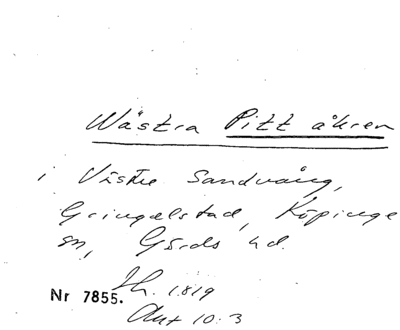 Wästra Pitt åkren
i Västre Sandvång,
Gringelstad, Köpinge
sn, Gärds hd.
Nr 7855. Jh. 1819
Akt 10:3